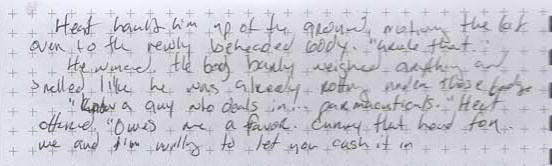 Heat hauls him up off the ground, motions the
over to the newly beheaded body. "that."
He the body barely weighed anything and
smelled like he was already rotting under those
"Know a guy who deals in... pharmaceuticals." Heat
offered, "Owes me a favor. Carry that head for
me and I'm willing to let you cash it in